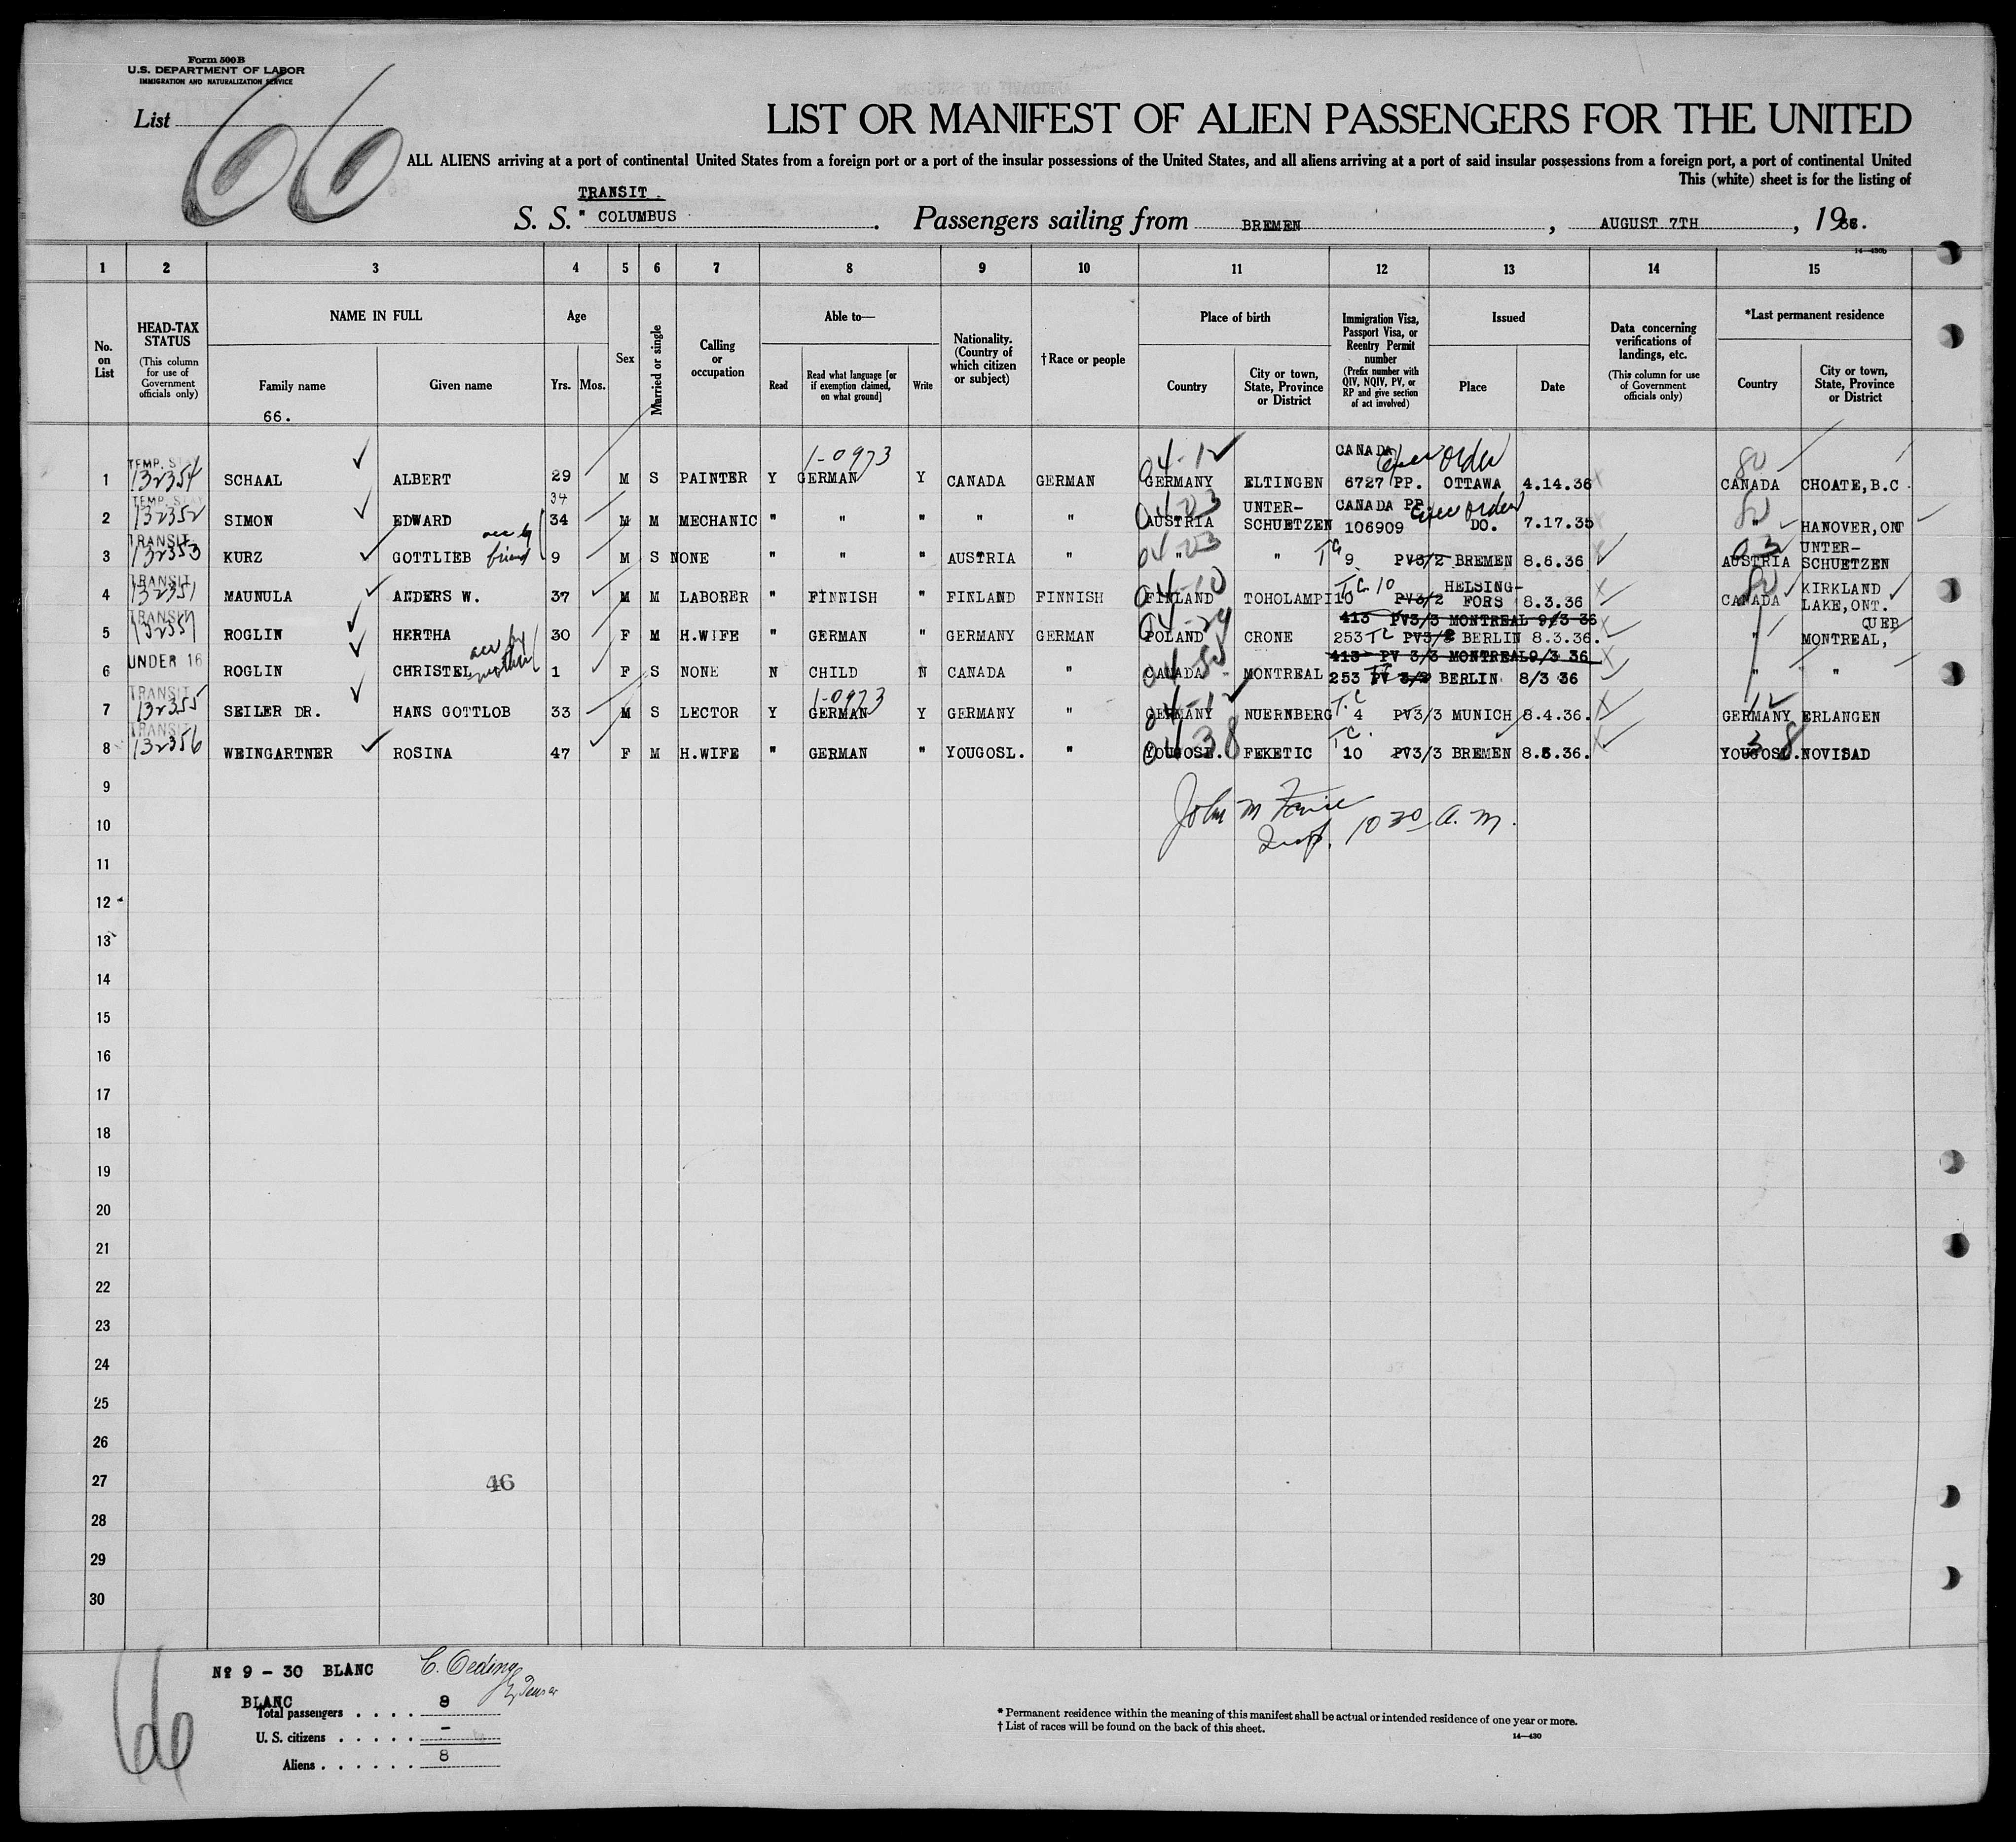 Form 500B
U.S. DEPARTMENT OF LABOR
IMMIGRATION AND NATURALIZATION SERVICE
List 66
LIST OR MANIFEST OF ALIEN PASSENGERS FOR THE UNITED
ALL ALIENS arriving at a port of continental United States from a foreign port or a port of the insular possessions of the United States, and all aliens arriving at a port of said insular possessions from a foreign port, a port of continental United
This (white) sheet is for the listing of
TRANSIT.
S. S. " COLUMBUS. Passengers sailing from BREMEN, AUGUST 7TH, 1936.
14—430b
1 2 3 4 5 6 7 8 9 10 11 12 13 14 15
No. on List
HEAD-TAX STATUS
(This column for use of Government officials only)
NAME IN FULL
Family name
Given name
66.
Age
Yrs. Mos.
Sex
Married or single
Calling or occupation
Able to—
Read
Read what language [or if exemption claimed, on what ground]
Write
Nationality. (Country of which citizen or subject)
†Race or people
Place of birth
Country
City or town, State, Province or District
Immigration Visa, Passport Visa, or Reentry Permit number
(Prefix number with QIV, NQIV, PV, or RP and give section of act involved)
Issued
Place
Date
Data concerning verifications of landings, etc.
(This column for use of Government officials only)
*Last permanent residence
Country
City or town, State, Province or District
TEMP. STAY 1-0973 04-12 CANADA Exec order 80
1 132354 SCHAAL ALBERT 29 M S PAINTER Y GERMAN Y CANADA GERMAN GERMANY ELTINGEN 6727 PP. OTTAWA 4.14.36 CANADA CHOATE, B.C.
TEMP. STAY 34 04-03 UNTER- CANADA PP Exec order 80
2 132352 SIMON EDWARD 34 M M MECHANIC " " " " " AUSTRIA SCHUETZEN 106909 DO. 7.17.35 " HANOVER, ONT
TRANSIT acc by friend 04-03 03 UNTER-
3 132353 KURZ GOTTLIEB 9 M S NONE " " " AUSTRIA " " " TC 9 PV3/2 BREMEN 8.6.36 AUSTRIA SCHUETZEN
TRANSIT 04-10 T.C. 10 HELSING- 80 KIRKLAND
4 132351 MAUNULA ANDERS W. 37 M M LABORER " FINNISH " FINLAND FINNISH FINLAND TOHOLAMPI 10 PV3/2 FORS 8.3.36 CANADA LAKE, ONT.
TRANSIT 04-29 413 PV3/3 MONTREAL 9/3 36 QUEB
5 ROGLIN HERTHA 30 F M H.WIFE " GERMAN " GERMANY GERMAN POLAND CRONE 253 TC PV3/2 BERLIN 8.3.36. " MONTREAL,
acc by mother 413 PV 3/3 MONTREAL 9/3 36
6 UNDER 16 ROGLIN CHRISTEL 1 F S NONE N CHILD N CANADA " CANADA MONTREAL 253 3/2 BERLIN 8/3 36 " "
TRANSIT 1-0973 04-12 T.C 12
7 132355 SEILER DR. HANS GOTTLOB 33 M S LECTOR Y GERMAN Y GERMANY " GERMANY NUERNBERG 4 PV3/3 MUNICH 8.4.36. GERMANY ERLANGEN
TRANSIT 04 38 T.C. 38
8 132356 WEINGARTNER ROSINA 47 F M H.WIFE " GERMAN " YOUGOSL. " YOUGOSL. FEKETIC 10 PV3/3 BREMEN 8.5.36. YOUGOSL. NOVISAD
9
10
John M
Insp. 10 30 A.M.
11
12
13
14
15
16
17
18
19
20
21
22
23
24
25
26
27 46
28
29
30
66
Nº 9 - 30 BLANC
C. Oeding
BLANC
Total passengers . . . . 8
U. S. citizens . . . . . -
Aliens . . . . . . 8
* Permanent residence within the meaning of this manifest shall be actual or intended residence of one year or more.
† List of races will be found on the back of this sheet.
14—430